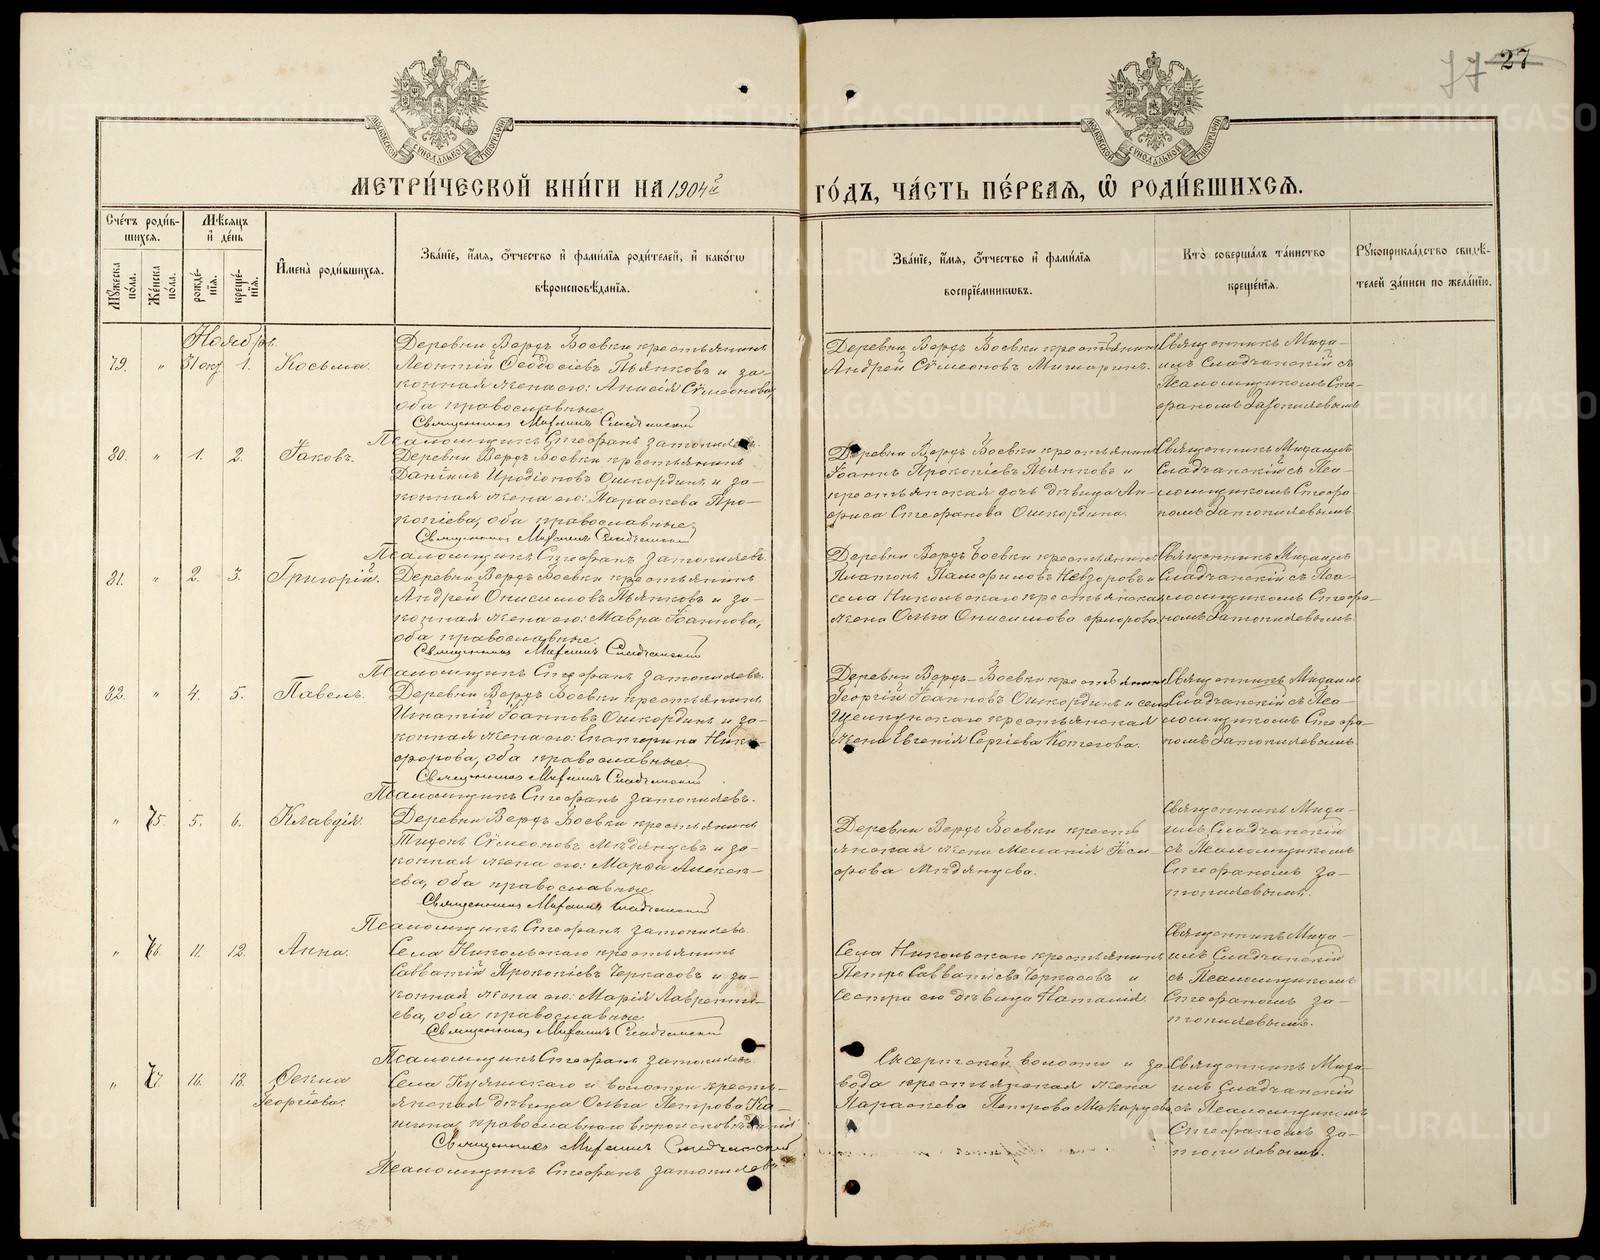 77 27
МЕТРИ́ЧЕСКОЙ КНИ́ГИ НА 1904й
ГО́ДЪ, ЧА́СТЬ ПЕ́РВАЯ, Ѡ РОДИ́ВШИХСЯ.
Сче́тъ роди́в-
шихся.
Му́жеска по́ла.
Же́нска по́ла.
Мѣ́сяцъ и де́нь
рожде́-
нїя.
креще́-
нїя.
И҆мена̀ роди́вшихся.
Зва́нїе, и҆́мя, ѻ҆́тчество и҆ фами́лїя роди́телей, и҆ како́гѡ
вѣроисповѣ́данїя.
Зва́нїе, и҆́мя, ѻ҆́тчество и҆ фами́лїя
воспрїе́мникѡвъ.
Кто̀ соверша́лъ та́инство
креще́нїя.
Рꙋкоприкла́дство свидѣ́-
телей за́писи по жела́нїю.
Ноябрь.
79. " 31 окт. 1. Косьма.
Деревни Верхъ Боевки крестьянинъ
Леонтій Ѳеодосіевъ Пьянковъ и за-
конная жена его: Анисія Сѵмеонова,
оба православные.
Священникъ Михаилъ Сладчанскій
Псаломщикъ Стефанъ Затопляевъ.
Деревни Верхъ Боевки крестьянинъ
Андрей Сѵмеоновъ Мишаринъ.
Священникъ Миха-
илъ Сладчанскій съ
Псаломщикомъ Сте-
фаномъ Затопляевымъ
80. " 1. 2. Іаковъ.
Деревни Верхъ Боевки крестьянинъ
Даніилъ Иродіоновъ Ошкординъ и за-
конная жена его: Параскева Про-
копіева, оба православные.
Священникъ Михаилъ Сладчанскій
Псаломщикъ Стефанъ Затопляевъ.
Деревни Верхъ Боевки крестьянинъ
Іоаннъ Прокопіевъ Пьянковъ и
крестьянская дочь дѣвица Ан-
фиса Стефанова Ошкордина.
Священникъ Михаилъ
Сладчанскій съ Пса-
ломщикомъ Стефа
номъ Затопляевымъ
81. " 2. 3. Григорій.
Деревни Верхъ Боевки крестьянинъ
Андрей Онисимовъ Пьянковъ и за-
конная жена его: Мавра Іоаннова,
оба православные.
Священникъ Михаилъ Сладчанскій
Псаломщикъ Стефанъ Затопляевъ.
Деревни Верхъ Боевки крестьянинъ
Платонъ Памфиловъ Невзоровъ и
села Никольскаго крестьянская
жена Ольга Онисимова
Священникъ Михаилъ
Сладчанскій съ Пса-
ломщикомъ Стефа-
номъ Затопляевымъ.
82. " 4. 5. Павелъ.
Деревни Верхъ Боевки крестьянинъ
Игнатій Іоанновъ Ошкординъ и за-
конная жена его: Екатерина Ники-
форова, оба православные.
Священникъ Михаилъ Сладчанскій
Псаломщикъ Стефанъ Затопляевъ.
Деревни Верхъ-Боевки крестьянинъ
Георгій Іоанновъ Ошкординъ и села
крестьянская
жена Евгенія Сергіева Котегова.
Священникъ Михаилъ
Сладчанскій съ Пса-
ломщикомъ Стефа-
номъ Затопляевымъ.
" 75. 5. 6. Клавдія.
Деревни Верхъ Боевки крестьянинъ
Тихонъ Сѵмеоновъ Мѣдянцевъ и за-
конная жена его: Марѳа Алексѣ-
ева, оба православные.
Священникъ Михаилъ Сладчанскій
Псаломщикъ Стефанъ Затопляевъ.
Деревни Верхъ Боевки кресть
янская жена Меланія Іоси-
фова Мѣдянцева.
Священникъ Миха-
илъ Сладчанскій
съ Псаломщикомъ
Стефаномъ За-
топляевымъ.
" 76. 11. 12. Анна.
Села Никольскаго крестьянинъ
Савватій Прокопіевъ Черкасовъ и за-
конная жена его: Марія Лавренті-
ева, оба православные.
Священникъ Михаилъ Сладчанскій
Псаломщикъ Стефанъ Затопляевъ
Села Никольскаго крестьянинъ
Петръ Савватіевъ Черкасовъ и
сестра его дѣвица Наталія.
Священникъ Миха-
илъ Сладчанскій
съ Псаломщикомъ
Стефаномъ За-
топляевымъ.
" 77. 16. 18. Ѳекла
Георгіева.
Села волости кресть-
янская дѣвица Ольга Петрова
православнаго вѣроисповѣданія
Священникъ Михаилъ Сладчанскій
Псаломщикъ Стефанъ Затопляевъ.
Сысертской волости и за-
вода крестьянская жена
Параскева Петрова Макарцева.
Священникъ Миха-
илъ Сладчанскій
съ Псаломщикомъ
Стефаномъ За-
топляевымъ.
METRIKI.GASO-URAL.RU